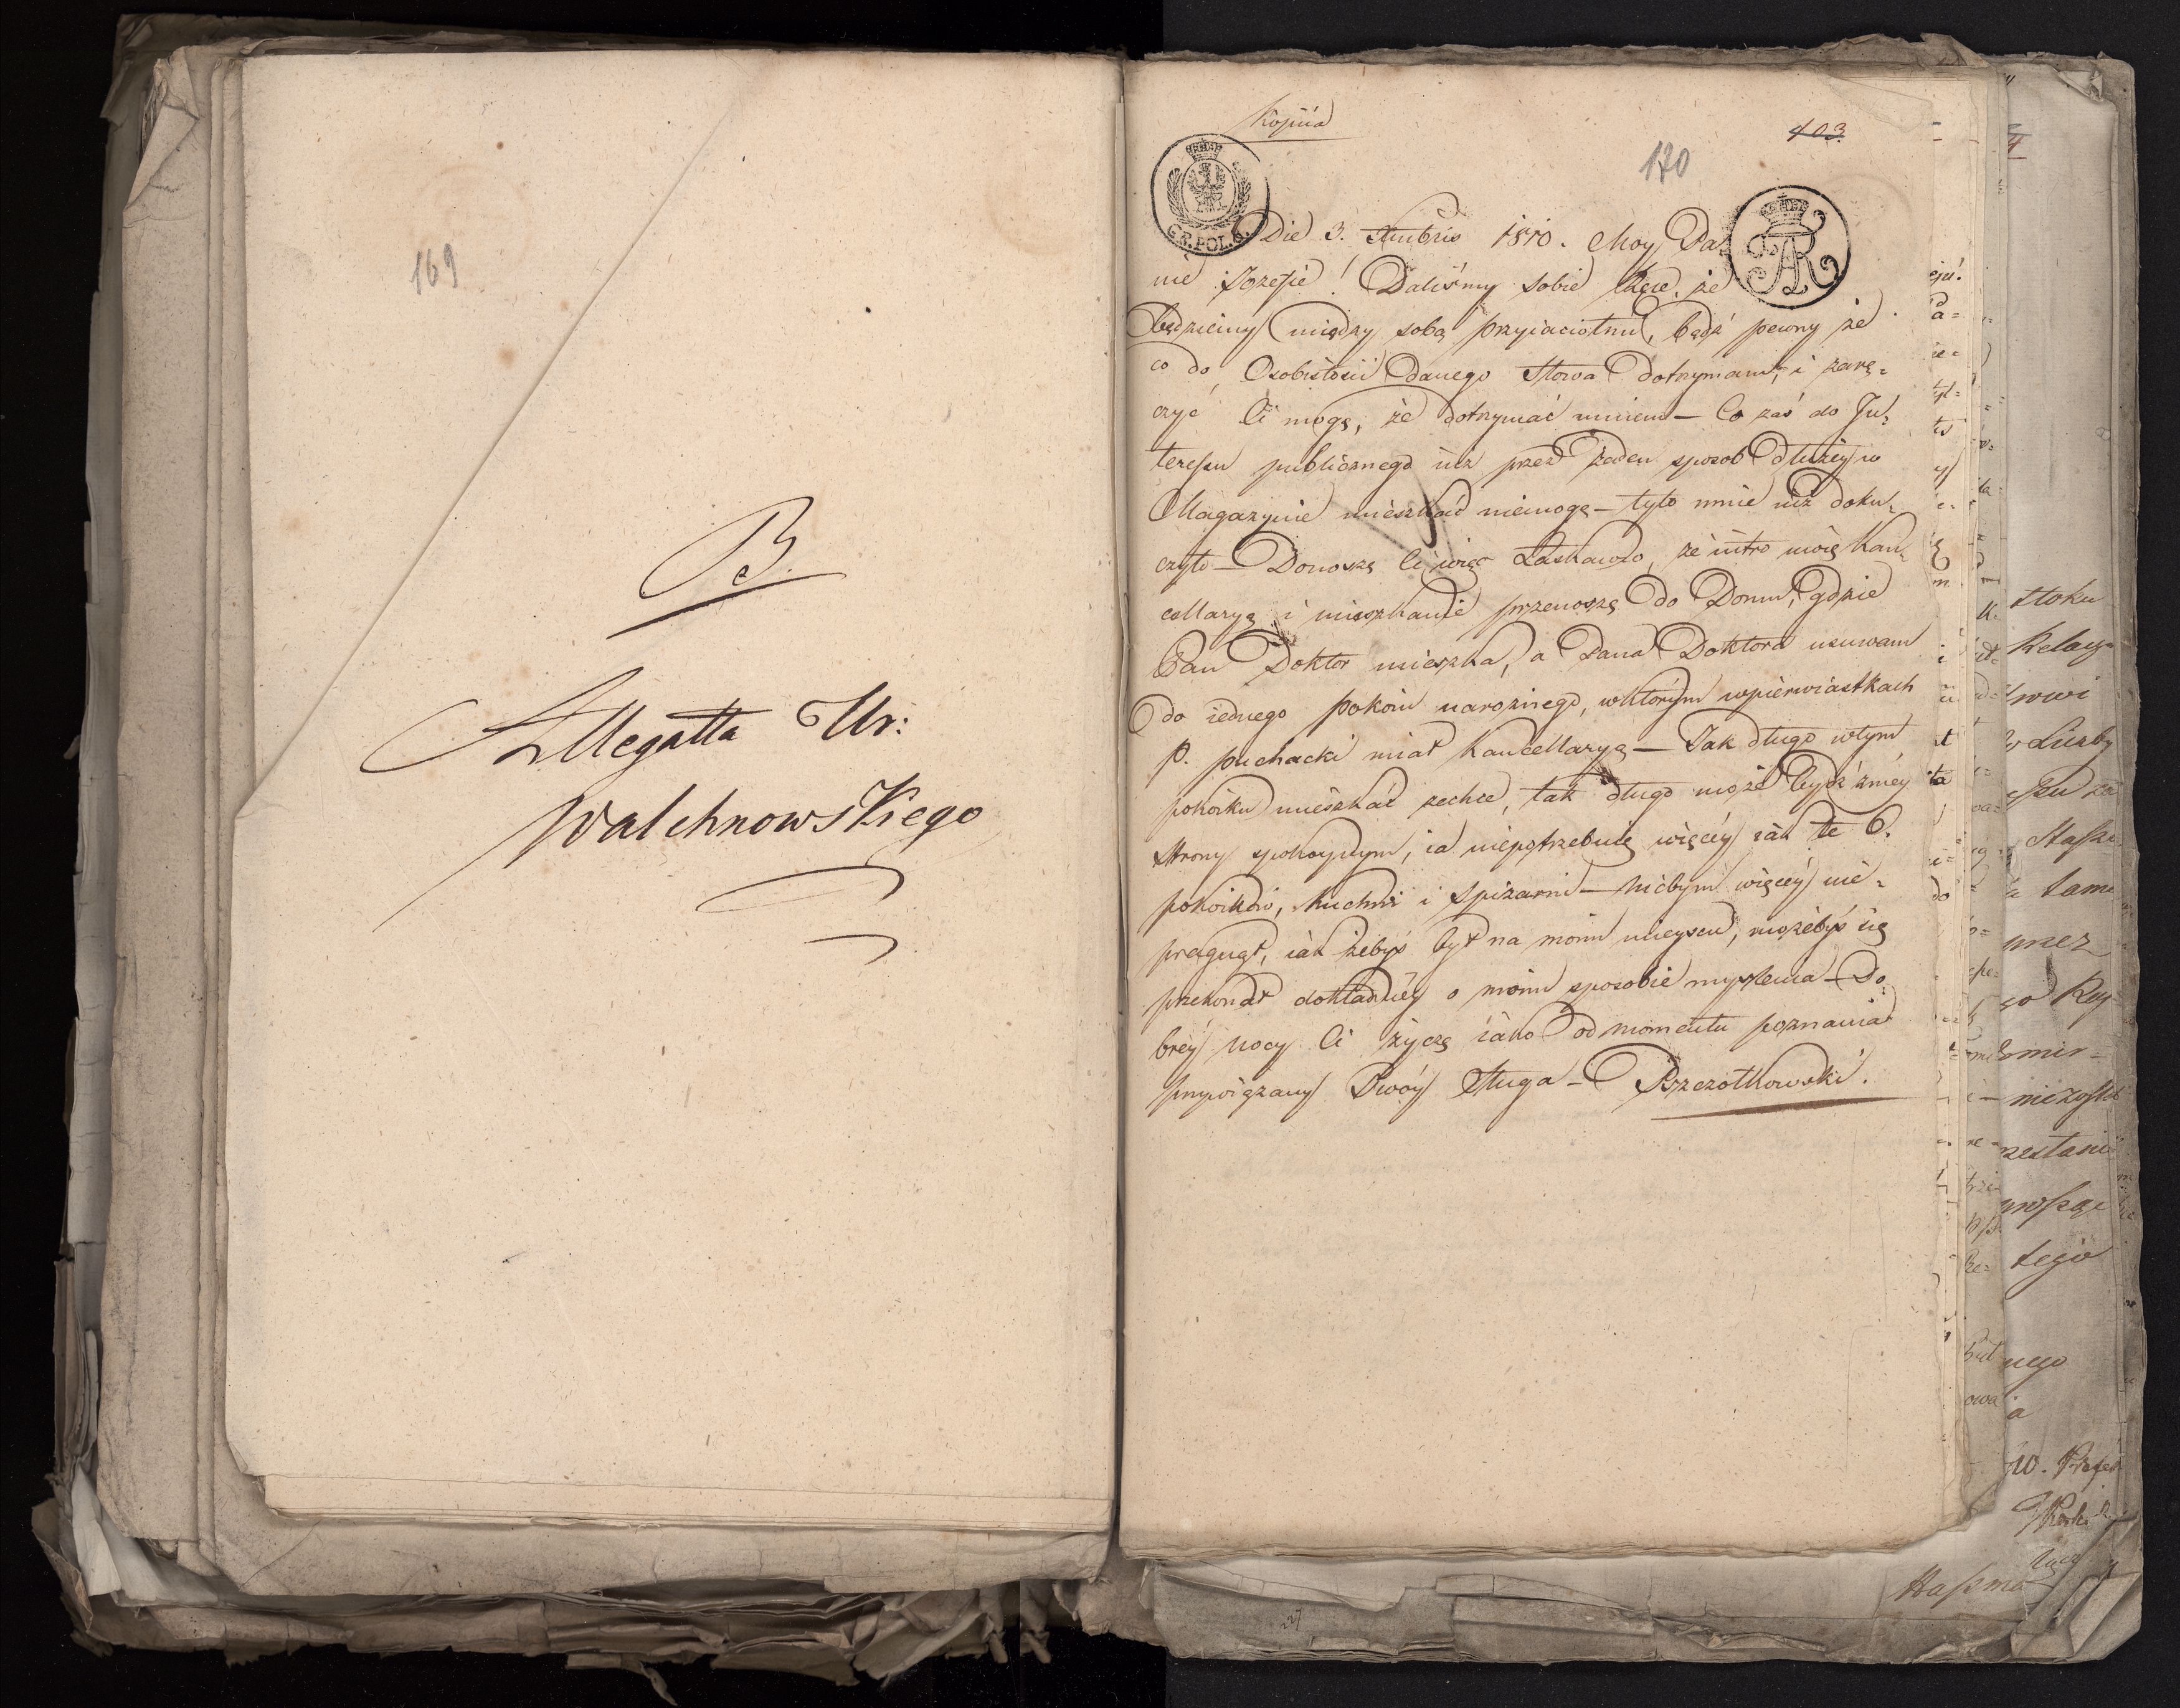 169
B.
Allegatta Ur:
Walchnowskiego
Kopiia
403.
170
GR.POL.6.
Die 3. Xmbris 1810. Moy Pa=
nie Jozefie! Daliśmy sobie Ręce, że
będziemy między sobą przyiaciołmi, bądź pewny że
co do Osobistości danego Słowa dotrzymam, i zarę=
czyć Ci mogę, że dotrzymać umiem — Co zaś do In=
teressu publicznego iuż przez żaden sposob dłużey w
Magazynie mieszkać niemogę — tyło mnie iuż doku=
czyło — Donoszę Ci więc Łaskawco, że iutro moię Kan=
cellaryą i mieszkanie przenoszę do Domu, gdzie
Pan Doktor mieszka, a Pana Doktora usuwam
do iednego pokoiu narożnego, wktórym wpierwiastkach
P. Puchacki miał Kancellaryą — Jak długo wtym
pokoiku mieszkać zechce, tak długo może bydź zmey
strony spokoynym, ia niepotrzebuię więcey iak te 6.
pokoików, Kuchni i Spiżarni — Nicbym więcey nie=
pragnął, iak żebyś był na moim mieyscu, możebyś się
przekonał dokładniey o moim sposobie myslenia — Do
brey nocy Ci życzę iako od momentu poznania
przywiązany Twóy Sługa — Brzezotkowski.